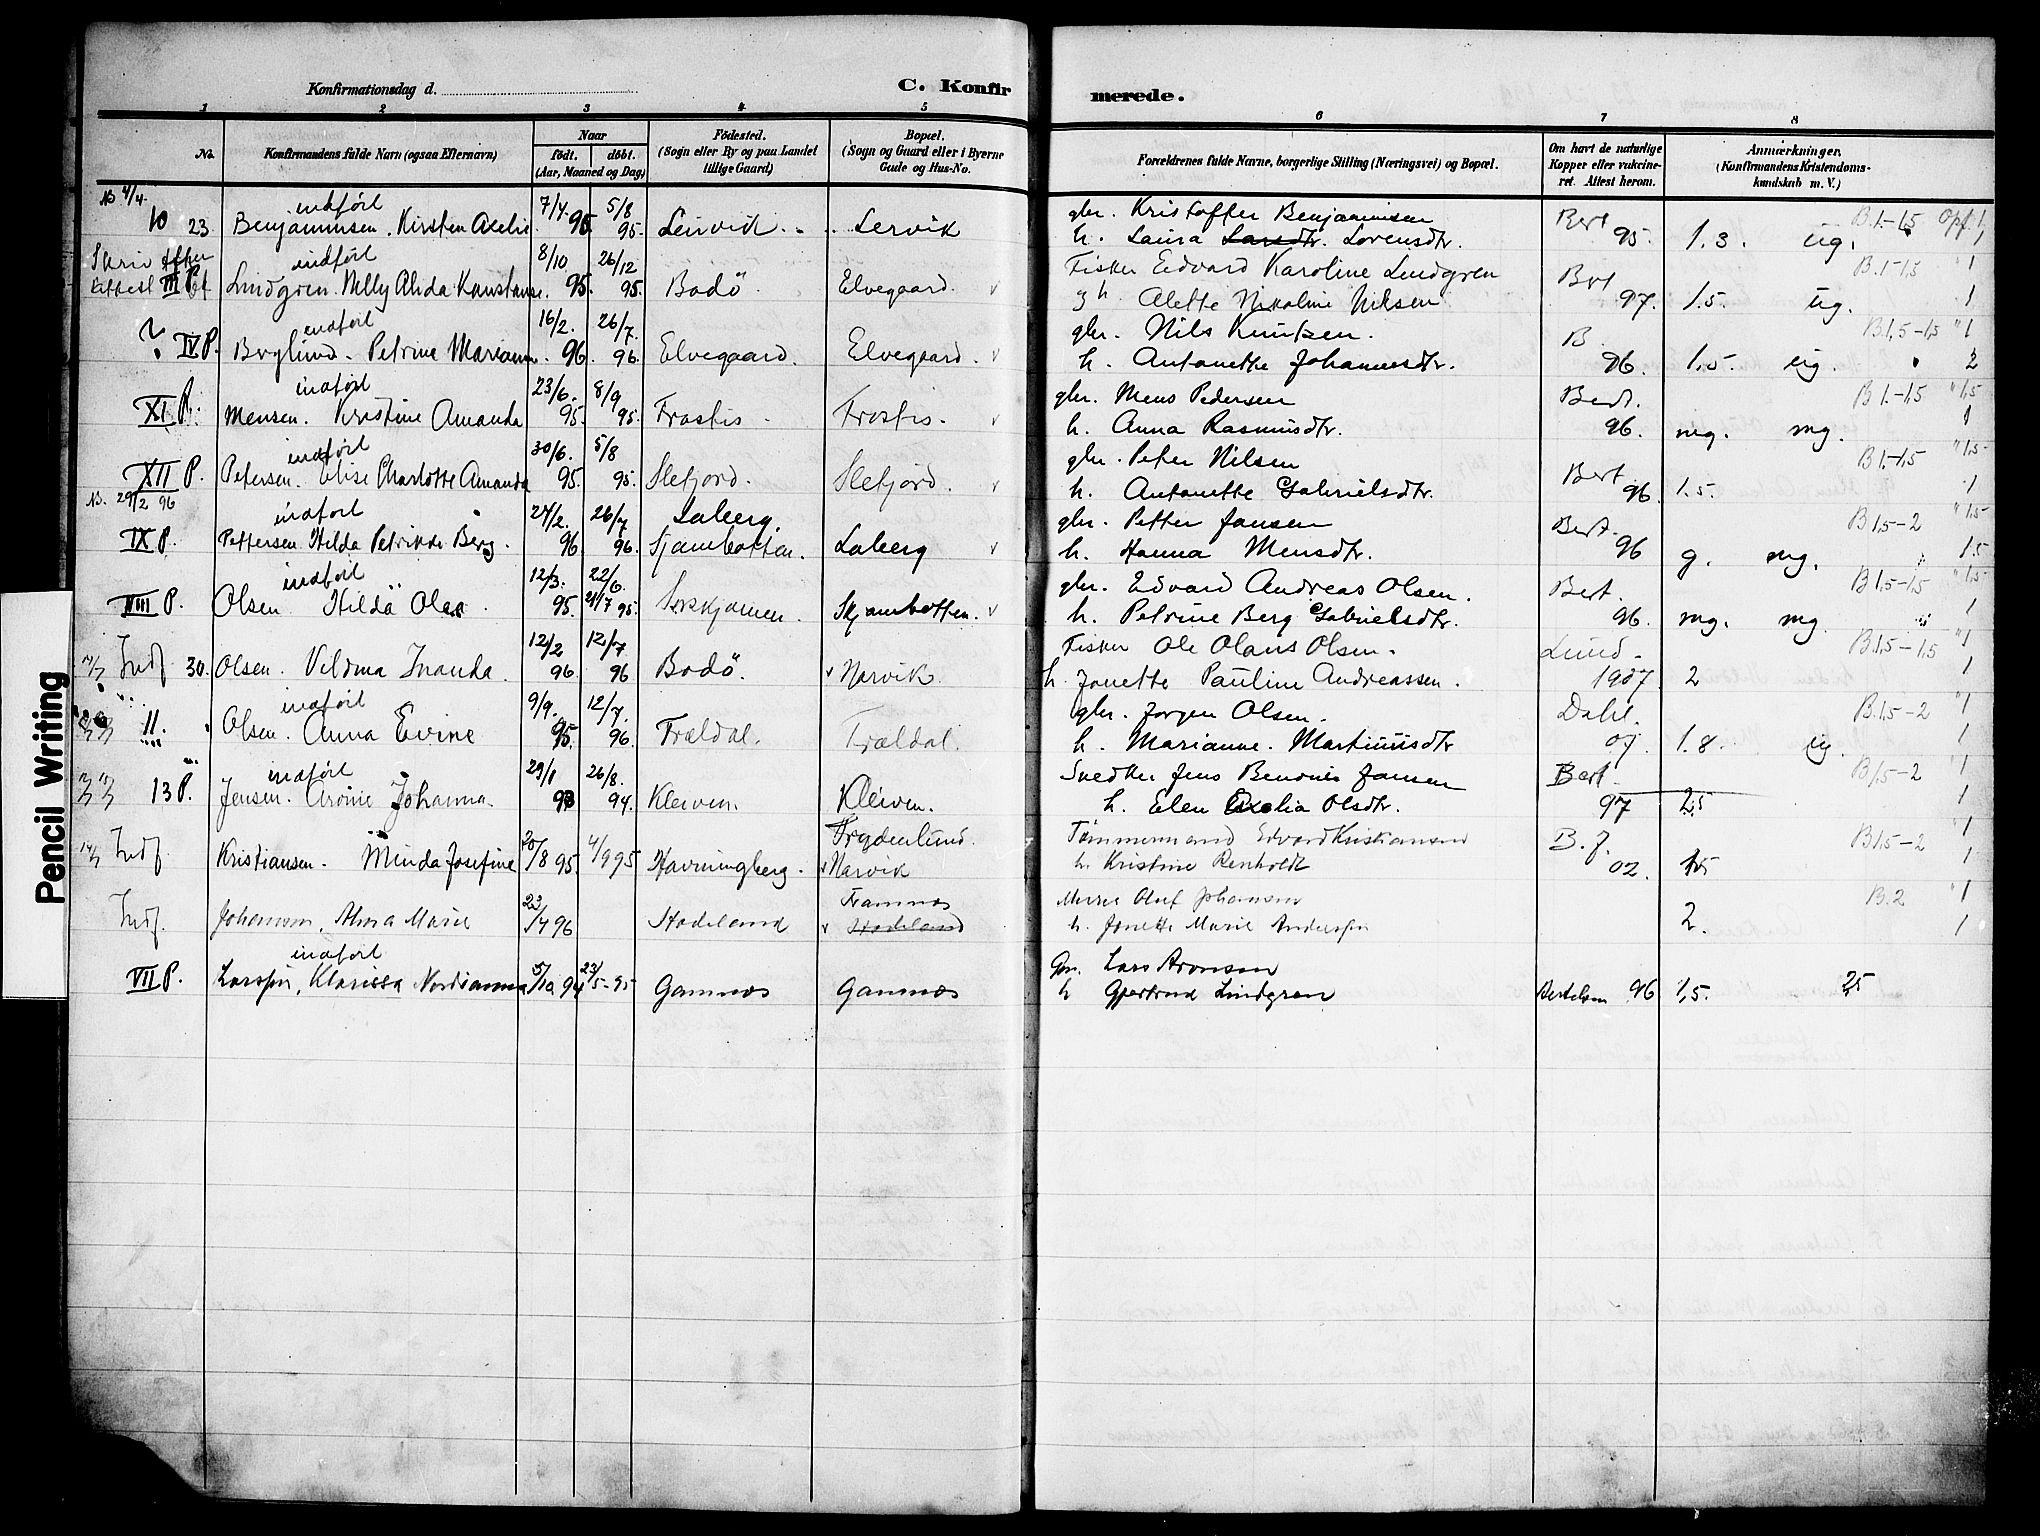 Konfirmationsdag d.
C. Konfirmerede.
1 2 3 4 5 6 7 8
No.
Konfirmandens fulde Navn (ogsaa Efternavn)
Naar
födt. döbt.
(Aar, Maaned og Dag)
Födested.
(Sogn eller By og paa Landet
tillige Gaard)
Bopæl.
(Sogn og Gaard eller i Byerne
Gade og Hus-No.
Forældrenes fulde Navne, borgerlige Stilling (Næringsvei) og Bopæl.
Om havt de naturlige
Kopper eller vakcine-
ret. Attest herom.
Anmærkninger,
(Konfirmandens Kristendoms-
kundskab m. V.)
indført 7/7. 5/8 gbr. Kristoffer Benjaminsen Bert B.1.-1,5 Opf. 1
10 23 Benjaminsen. Kirsten Axelie 95. 95. Leirvik Lervik h. Laura Larsdtr. Lorensdtr. 95. 1.3. ug.
indført 8/10 26/12 Fisker Edvard Karoline Lindgren B.1-1,5 1
III P. Lindgren. Nelly Alida Konstanse. 95. 95. Bodö. Elvegaard. v g h. Alette Nikoline Nilsen 97. 1.5. ug. 1
indført 16/2. 26/7. gbr. Nils Knutsen. B. B.1,5-1,5 " 1
? IV P. Berglund. Petrine Marianne. 96. 96. Elvegaard. Elvegaard. v h. Antonette Johannesdtr. 96. 1,5. ug. 2
indført 23/6. 8/9 gbr. Mens Pedersen Bert. B 1.-1,5 " 1,5
XI P. Mensen. Kristine Amanda 95. 95. Frostis. Frostis. v h. Anna Rasmusdtr. 96. mg. mg. 1
indført 30/6. 5/8 gbr. Peter Nilsen Bert B 1.-1,5 " 1,5
XII P. Petersen. Elise Charlotte Amanda 95. 95. Slefjord. Slefjord. v h. Antonette Gabrielsdtr. 96. 1.5. 1
NB. 29/2 96 indført 24/2. 26/7 Laberg. gbr. Petter Jansen Bert. B 1,5-2 " 1,5
IX P. Pettersen Hilda Petrikke Berg. 96. 96. Sjambotten. Laberg v h. Hanna Mensdtr. 96 g. mg. 1.5
indført 12/3. 22/6 gbr. Edvard Andreas Olsen. Bert. B 1,5-1,5 " 1,5
VIII P. Olsen Hilda Olea. 95. 21/7 95. Skjambotten. v h. Petrine Berg Gabrielsdtr. 96. mg. mg. 1
12/2 12/7 Fisker Ole Olaus Olsen. Lund. B.1,5-1,5 " 1
Indf 30. Olsen. Veldma Inanda. 96. 96 Bodö. v Narvik. h. Jonette Pauline Andreassen. 1907. 2 1
indført 9/9. 12/7. gbr. Jørgen Olsen. Dahl. B.1,5-2 " 1
11. Olsen. Anna Evine 95. 96. Trældal. Trældal. h. Marianne. Martinusdtr 07. 1.8. ug. 1
indført 29/1 26/8. Snedker Jens Benonie Jansen Bert. B 1,5-2 " 1
13 P. Jensen. Aronie Johanna. 93 94. Kleiven. Kleiven. h. Elen Axelia Olsdtr. 97 2,5 1
Frydenlund. Tømmermand Edvard Kristiansen B. J. B 1,5-2 " 1
14/7 Indf. Kristiansen. Minda Josefine 20/8 95. 4/9 95 Havningberg. v Narvik h. Kristine Renholdt 02. 1,5 1
Framnes Murer Oluf Johansen B.2 " 1
Indf. Johansen, Alma Marie 23/7 96 Hadeland v Hadeland h. Jonette Marie Anderssen 2. 1
indført Gbr. Lars Aronsen
VII P. Larssen, Klarissa Nordianna 5/10 94 23/5-95 Gamnes Gamnes h Gjertrud Lindgren Bertelsen 96 1,5. 2,5
Pencil Writing